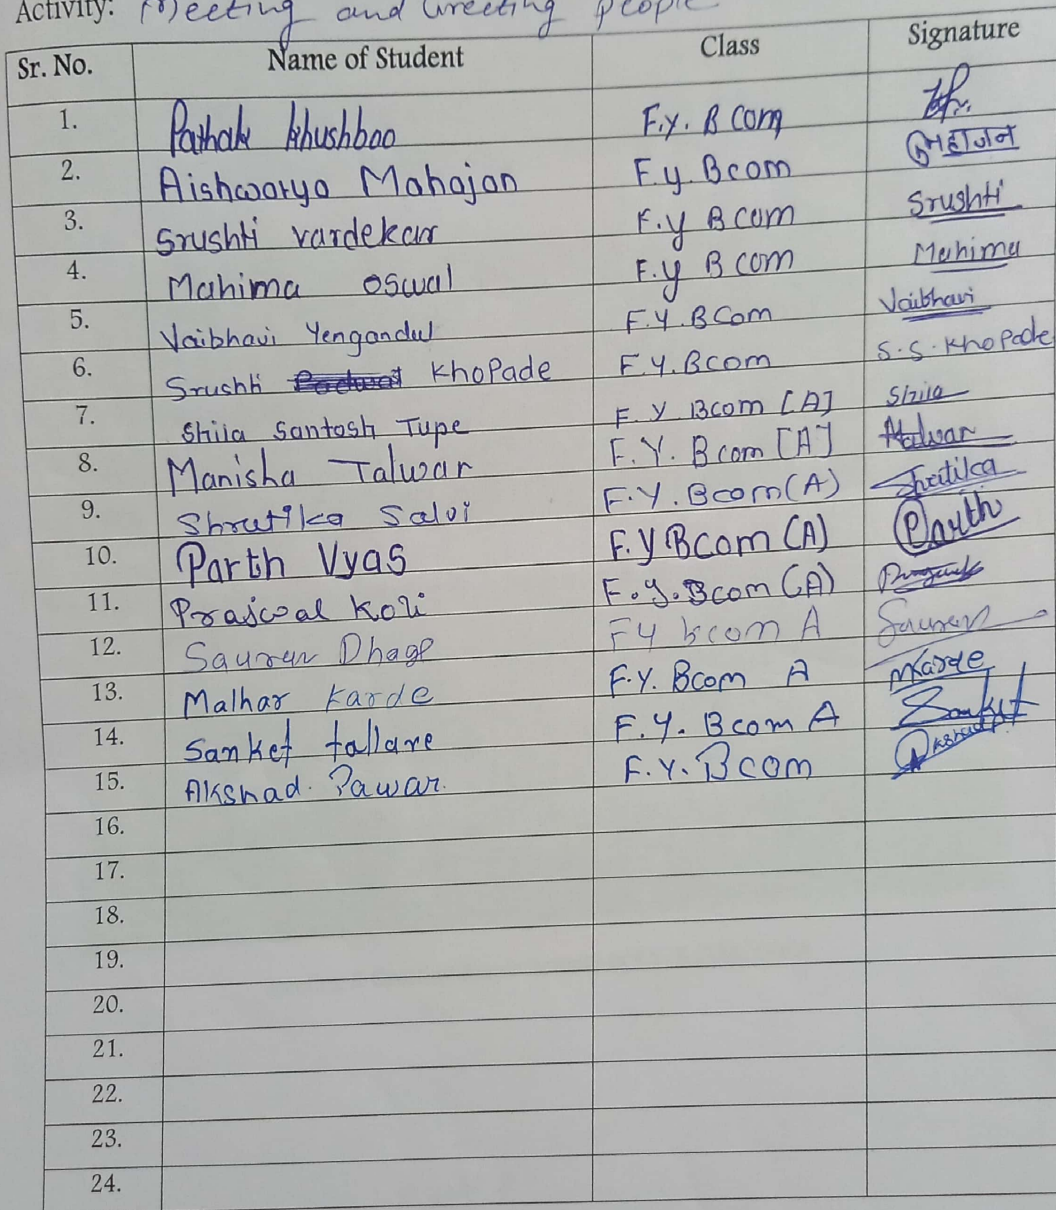 Activity: Meeting and Greeting people
Sr. No. Name of Student Class Signature
1. Pathak Khushboo F.y. B com
2. Aishwarya Mahajan F.y Bcom महाजन
3. Srushti vardekar F.y B com Srushti
4. Mahima oswal F.y B com Mahima
5. Vaibhavi Yengandul F.Y.BCom Vaibhavi
6. Srushti KhoPade F.Y.Bcom S.S.KhoPade
7. Shila Santosh Tupe F Y Bcom [A] Shila
8. Manisha Talwar F.Y.Bcom [A] Talwar
9. Shrutika Salvi F.Y.Bcom(A) Shrutika
10. Parth Vyas F.Y Bcom (A) Parth
11. Prajwal Koli F.y.Bcom (A)
12. Saurav Dhage FY bcom A Saurav
13. Malhar Karde F.Y. Bcom A MKarde
14. Sanket tallare F.Y. Bcom A Sanket
15. Akshad. Pawar. F.Y.Bcom Akshad
16.
17.
18.
19.
20.
21.
22.
23.
24.